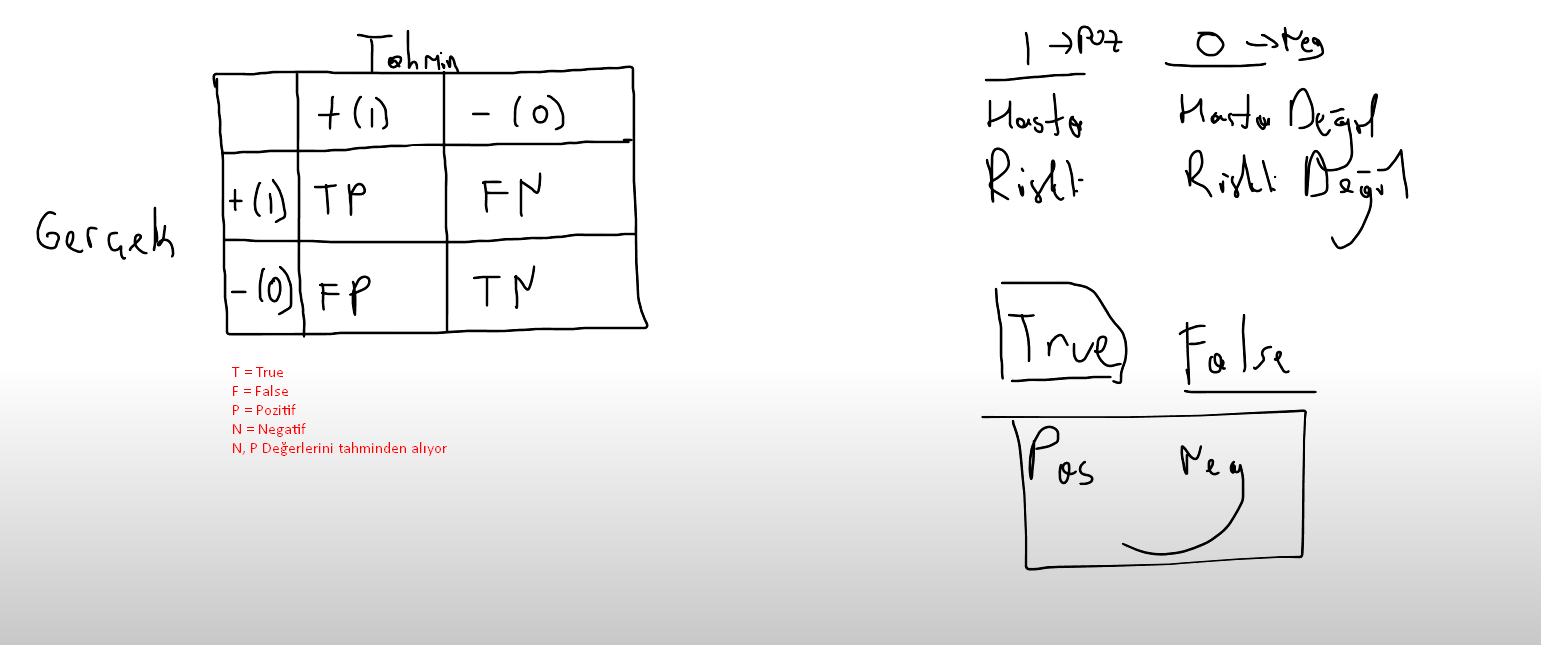 Tahmin
+(1) -(0)
Gerçek
+(1) TP FN
-(0) FP TN
T = True
F = False
P = Pozitif
N = Negatif
N, P Değerlerini tahminden alıyor
1 → Poz 0 → Neg
Hasta Hasta Değil
Riskli Riskli Değil
True False
Pos Neg